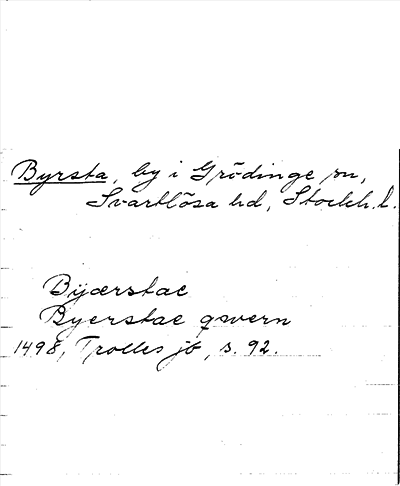 Byrsta, by i Grödinge sn,
Svartlösa hd, Stockh. l.
Bijærstae
Byerstae qwern
1498, Trolles jb, s. 92.